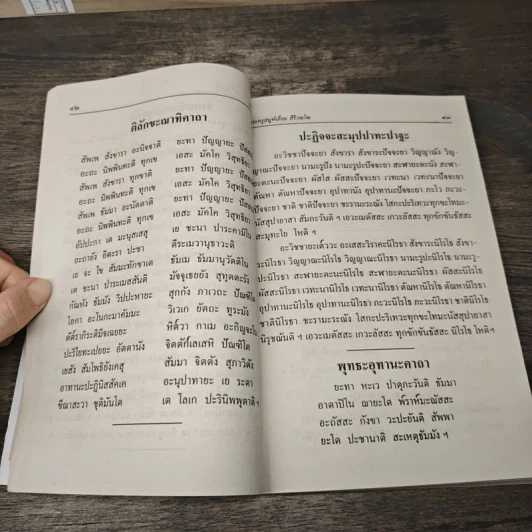 ๔๒
ติลักขะณาทิคาถา
สัพเพ สังขารา อะนิจจาติ ยะทา ปัญญายะ ปัสสะ
อะถะ นิพพินทะติ ทุกเข เอสะ มัคโค วิสุทธิยา
สัพเพ สังขารา ทุกขาติ ยะทา ปัญญายะ
อะถะ นิพพินทะติ ทุกเข เอสะ มัคโค วิสุทธิยา
สัพเพ ธัมมา อะนัตตาติ ยะทา ปัญญายะ
อะถะ นิพพินทะติ ทุกเข เอสะ มัคโค วิสุทธิยา
อัปปะกา เต มะนุสเสสุ เย ชะนา ปาระคามิโน
อะถายัง อิตะรา ปะชา ตีระเมวานุธาวะติ
เย จะ โข สัมมะทักขาเต ธัมเม ธัมมานุวัตติโน
เต ชะนา ปาระเมสสันติ มัจจุเธยยัง สุทุตตะรัง
กัณหัง ธัมมัง วิปปะหายะ สุกกัง ภาเวถะ ปัณฑิโต
โอกา อะโนกะมาคัมมะ วิเวเก ยัตถะ ทูระมัง
ตัต๎ราภิระติมิจเฉยยะ หิต๎วา กาเม อะกิญจะโน
ปะริโยทะเปยยะ อัตตานัง จิตตักเลเสหิ ปัณฑิโต
เยสัง สัมโพธิยังเคสุ สัมมา จิตตัง สุภาวิตัง
อาทานะปะฏินิสสัคเค อะนุปาทายะ เย ระตา
ขีณาสะวา ชุติมันโต เต โลเก ปะรินิพพุตาติ ฯ
๔๓
ปะฏิจจะสะมุปปาทะปาฐะ
อะวิชชาปัจจะยา สังขารา สังขาระปัจจะยา วิญญาณัง วิญ-
ญาณะปัจจะยา นามะรูปัง นามะรูปะปัจจะยา สะฬายะตะนัง สะฬา-
ยะตะนะปัจจะยา ผัสโส ผัสสะปัจจะยา เวทะนา เวทะนาปัจจะยา
ตัณหา ตัณหาปัจจะยา อุปาทานัง อุปาทานะปัจจะยา ภะโว ภะวะ-
ปัจจะยา ชาติ ชาติปัจจะยา ชะรามะระณัง โสกะปะริเทวะทุกขะโทมะ-
นัสสุปายาสา สัมภะวันติ ฯ เอวะเมตัสสะ เกวะลัสสะ ทุกขักขันธัสสะ
สะมุทะโย โหติ ฯ
อะวิชชายะเต๎ววะ อะเสสะวิราคะนิโรธา สังขาระนิโรโธ สังขา-
ระนิโรธา วิญญาณะนิโรโธ วิญญาณะนิโรธา นามะรูปะนิโรโธ นามะรูปะนิโรธา
สะฬายะตะนะนิโรโธ สะฬายะตะนะนิโรธา ผัสสะนิโรโธ
ผัสสะนิโรธา เวทะนานิโรโธ เวทะนานิโรธา ตัณหานิโรโธ ตัณหานิโรธา
อุปาทานะนิโรโธ อุปาทานะนิโรธา ภะวะนิโรโธ ภะวะนิโรธา ชาตินิโรโธ
ชาตินิโรธา ชะรามะระณัง โสกะปะริเทวะทุกขะโทมะนัสสุปายาสา
นิรุชฌันติ ฯ เอวะเมตัสสะ เกวะลัสสะ ทุกขักขันธัสสะ นิโรโธ โหติ ฯ
พุทธะอุทานะคาถา
ยะทา หะเว ปาตุภะวันติ ธัมมา
อาตาปิโน ฌายะโต พ๎ราห๎มะณัสสะ
อะถัสสะ กังขา วะปะยันติ สัพพา
ยะโต ปะชานาติ สะเหตุธัมมัง ฯ